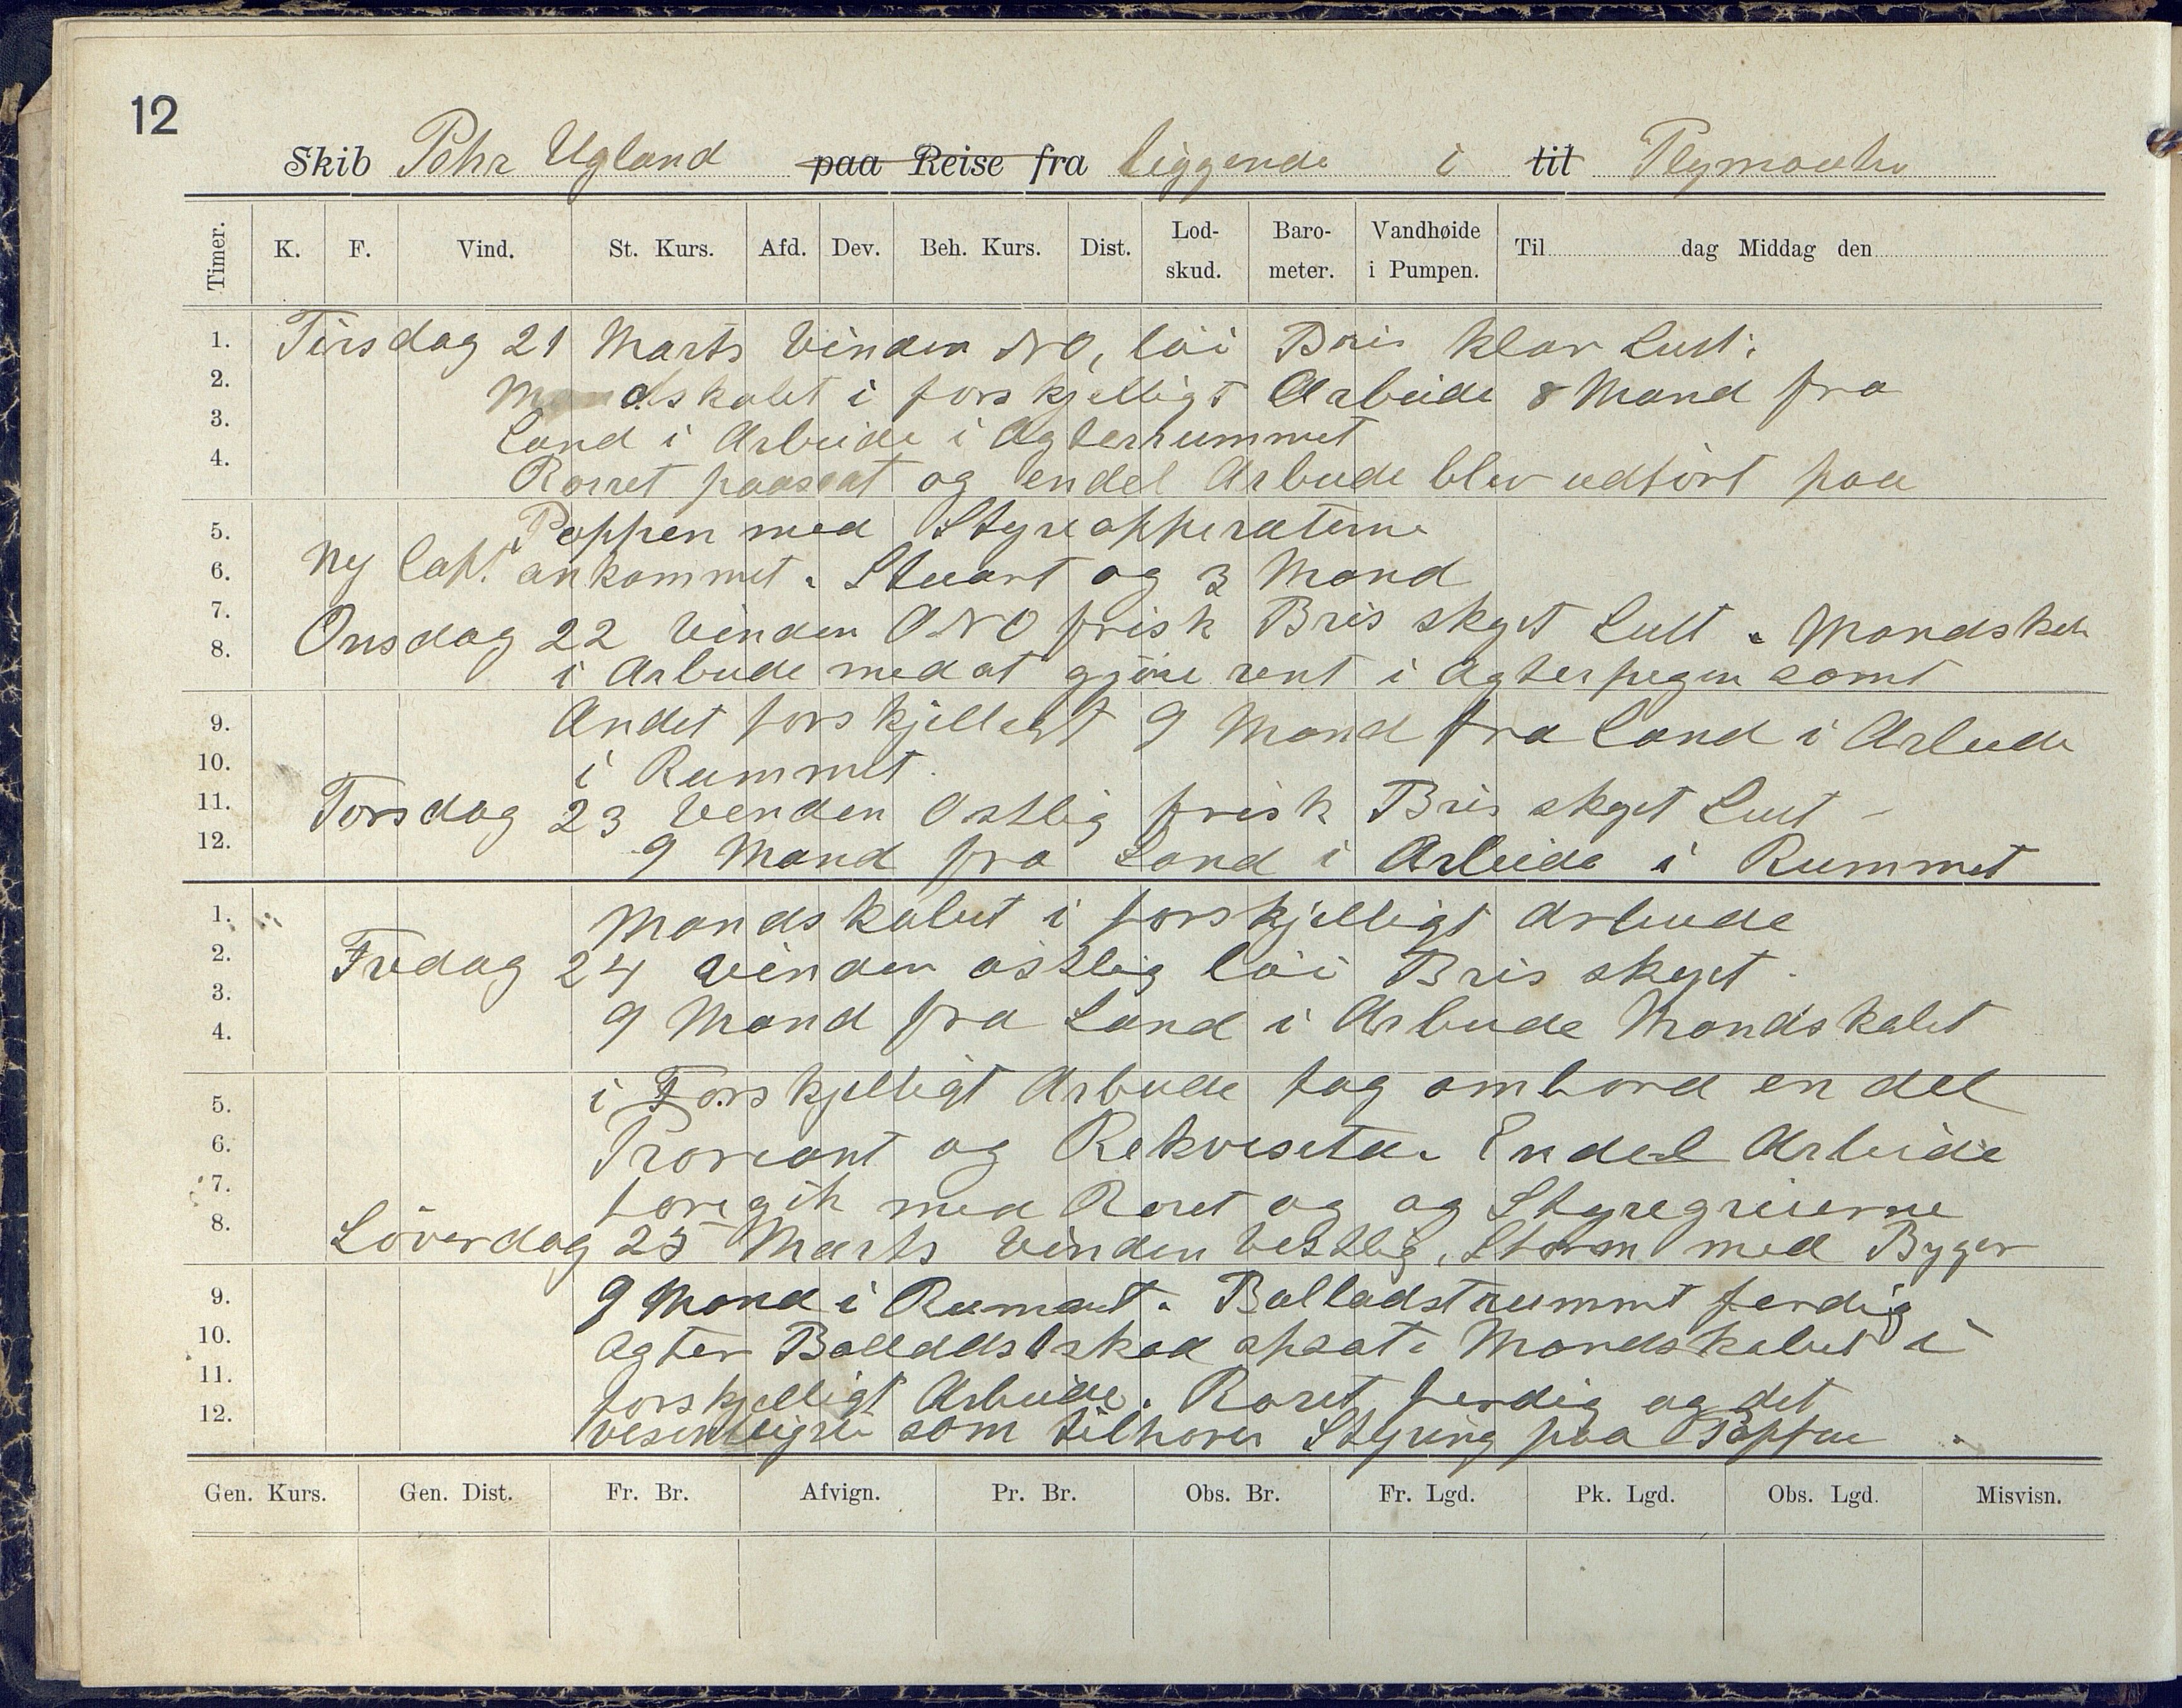 12
Skib Pehr Ugland paa Reise fra liggende i til Plymouth
Timer. K. F. Vind. St. Kurs. Afd. Dev. Beh. Kurs. Dist. Lod-skud. Baro-meter. Vandhøide i Pumpen. Til dag Middag den
1. Tirsdag 21 Marts Vinden NO, löi Bris klar Luft.
2. Mandskabet i forskjelligt Arbeide 8 Mand fra
3. Land i Arbeide i Agterrummet
4. Rorret paasat og endel Arbeide blev udfört paa
5. Poppen med Styreapperaterne
6. Ny Capt. ankommet. Stuart og 3 Mand
7. Onsdag 22 Vinden ONO frisk Bris skyet Luft. Mandskab
8. i Arbeide med at gjöre rent i Agterpegen samt
9. Andet forskjelligt 9 Mand fra Land i Arbeide
10. i Rummet.
11. Torsdag 23 Vinden Ostlig frisk Bris skyet Luft –
12. 9 Mand fra Land i Arbeide i Rummet
1. Mandskabet i forskjelligt Arbeide
2. Fredag 24 Vinden östlig löi Bris skyet.
3. 9 Mand fra Land i Arbeide Mandskabet
4.
5. i Forskjelligt Arbeide tog ombord en del
6. Proviant og Rekvisita. Endel Arbeide
7. foregik med Roret og og Styregreierne
8. Löverdag 25 Marts Vinden Vestlig, Storm med Byger
9. 9 Mand i Rumet. Balladstrummet ferdig
10. Agter Balladdstskod opsat. Mandskabet i
11. forskjelligt Arbeide. Roret ferdig og det
12. vesentligste som tilhorer Styring paa Poppen.
Gen. Kurs. Gen. Dist. Fr. Br. Afvign. Pr. Br. Obs. Br. Fr. Lgd. Pk. Lgd. Obs. Lgd. Misvisn.